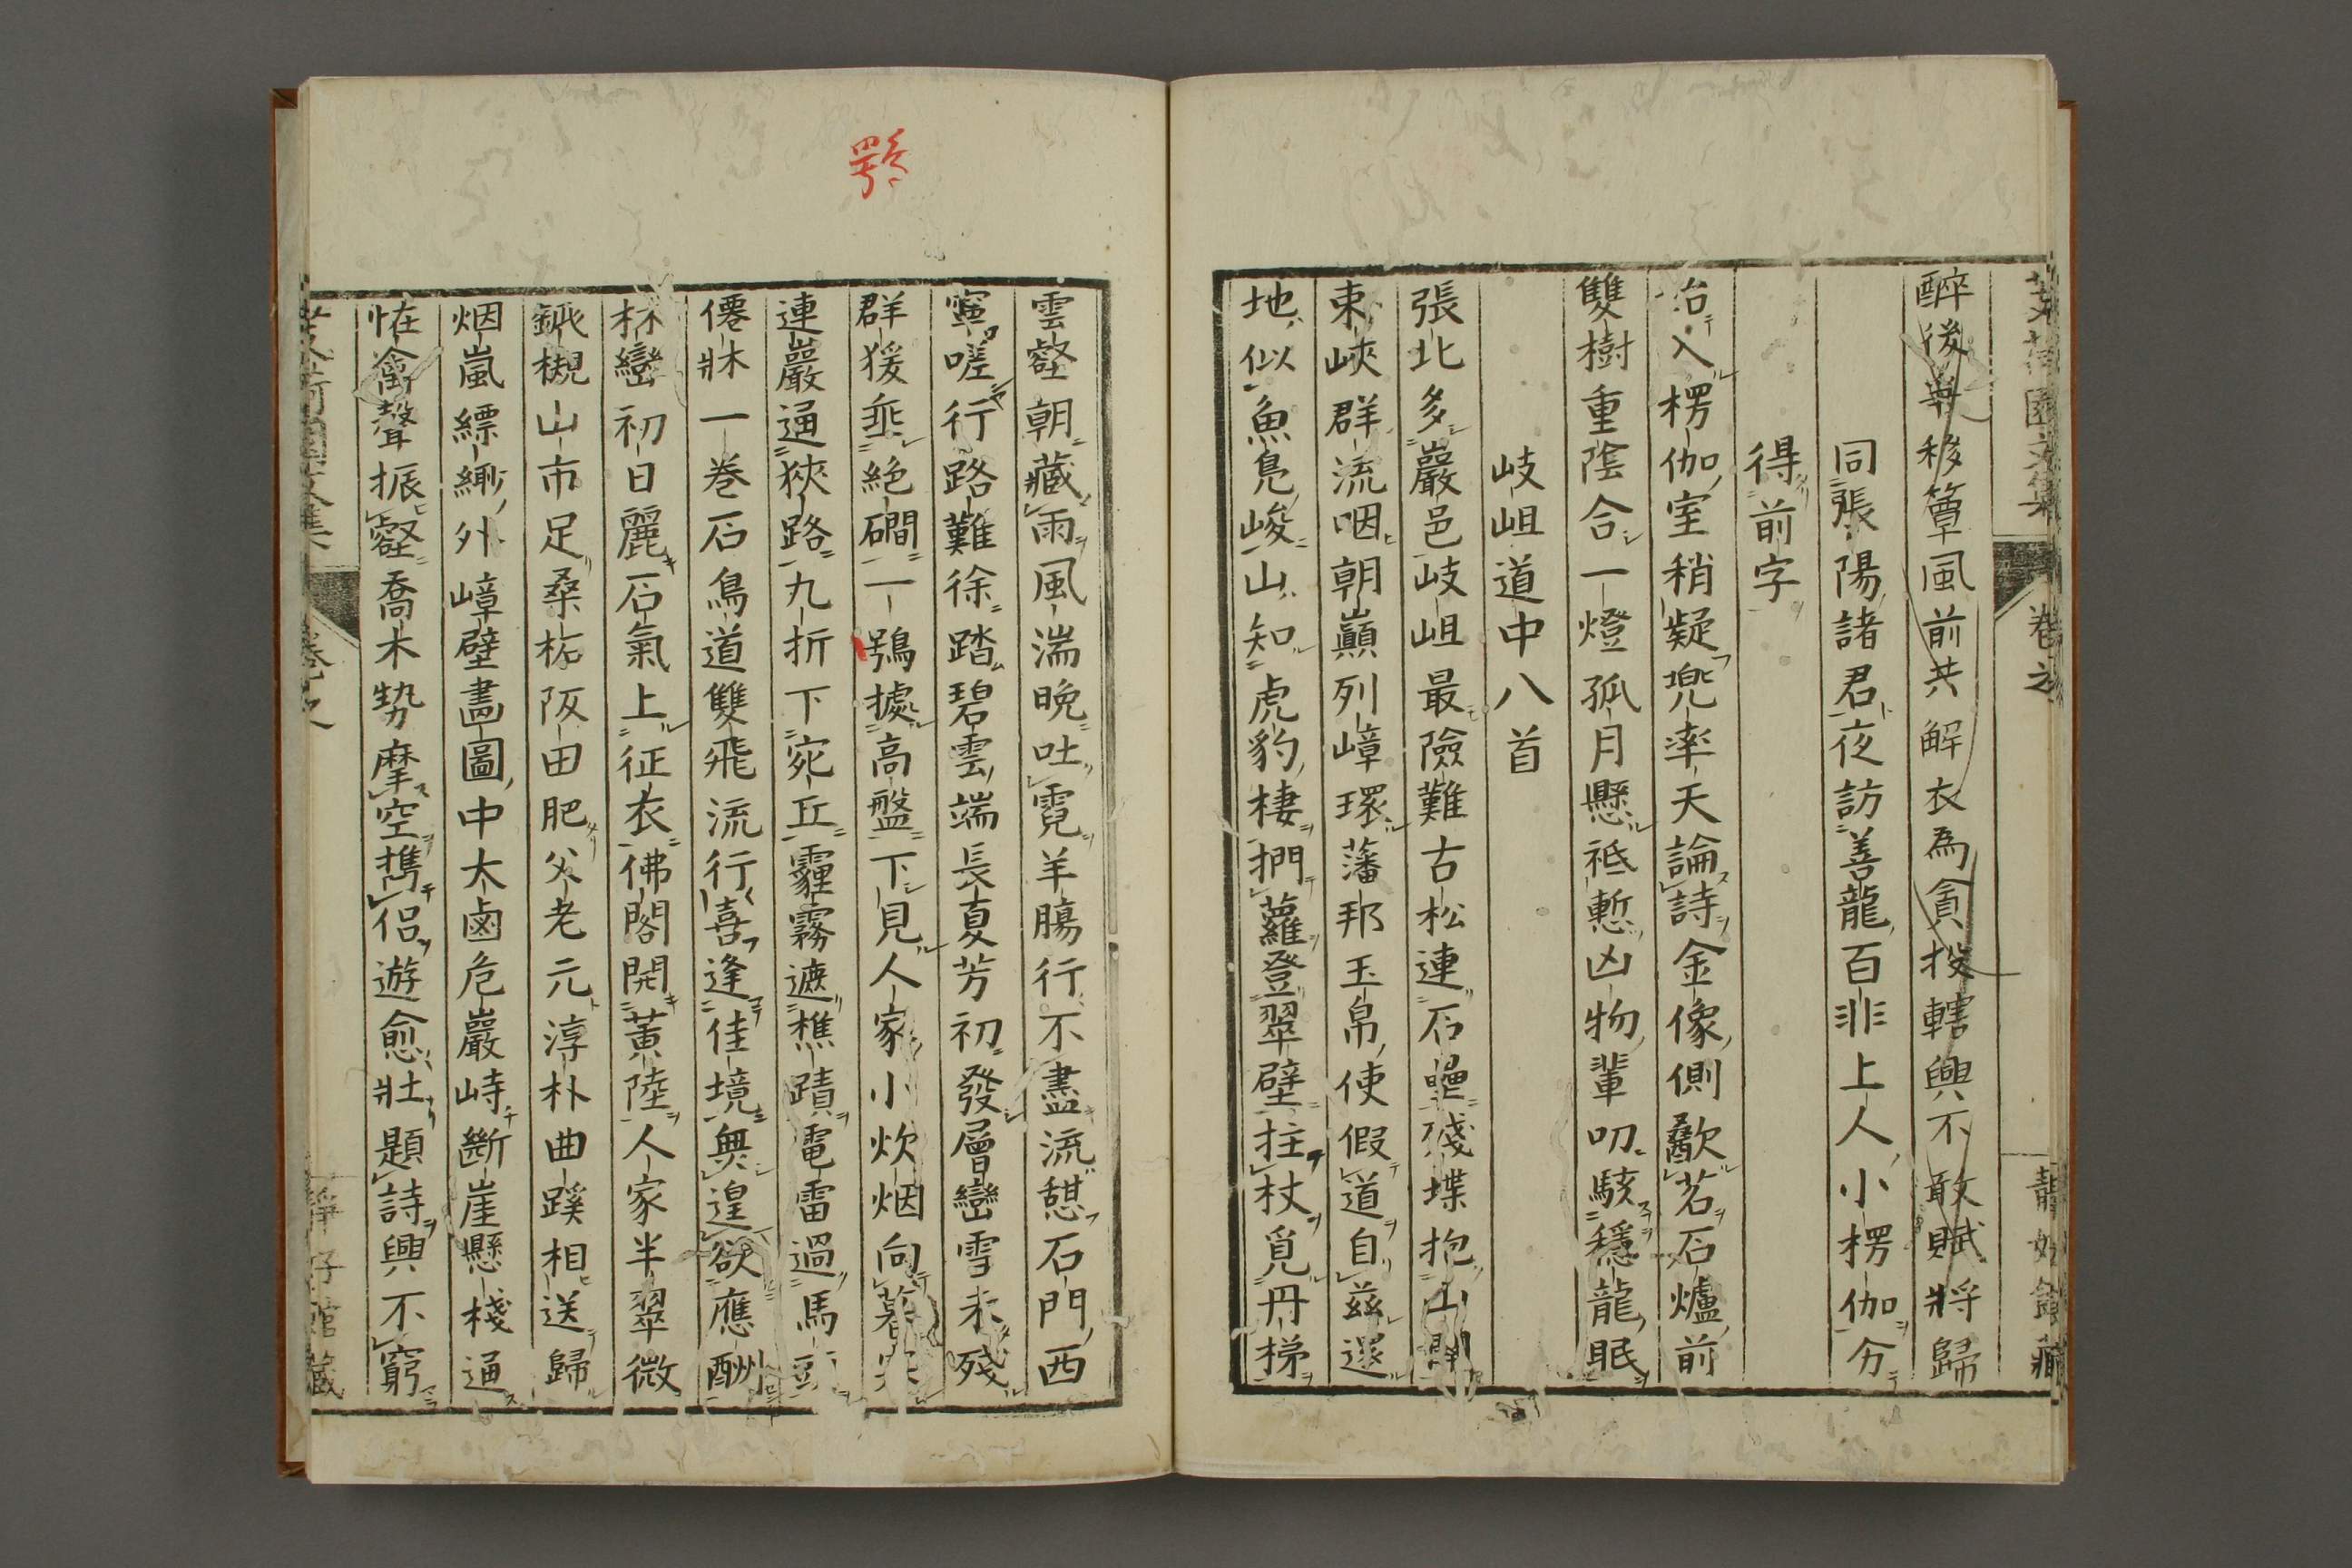 醉後尊移簟風前共解衣為貪投轄興不敢賦將歸
同張陽諸君夜訪善龍百非上人小楞伽分
得前字
始入楞伽室稍疑兜率天論詩金像側歠茗石爐前
雙樹重陰合一燈孤月懸祗慙凶物輩叨駭穩龍眠
岐岨道中八首
張北多巖邑岐岨最險難古松連石壘殘堞抱山關
東峽群流咽朝巔列嶂環藩邦玉帛使假道自茲還
地似魚鳧峻山知虎豹棲捫蘿登翠壁拄杖覓丹梯
雲壑朝藏雨風湍晚吐霓羊腸行不盡流憩石門西
寧嗟行路難徐踏碧雲端長夏芳初發層巒雪未殘
群猨垂絶磵一鶚據高盤下見人家小炊烟向暮
連巖通狹路九折下宛丘霾霧遮樵蹟電雷過馬頭
僊牀一巻石鳥道雙飛流行喜逢佳境無遑欲應酬
林巒初日麗石氣上征衣佛閣開黄陸人家半翠微
鏚槻山市足桑柘阪田肥父老元淳朴曲蹊相送歸
烟嵐縹緲外嶂壁畫圖中大鹵危巖峙斷崖懸棧通
恠禽聲振壑喬木勢摩空携侶遊愈壯題詩興不窮
卷之
靜好館藏
鶚